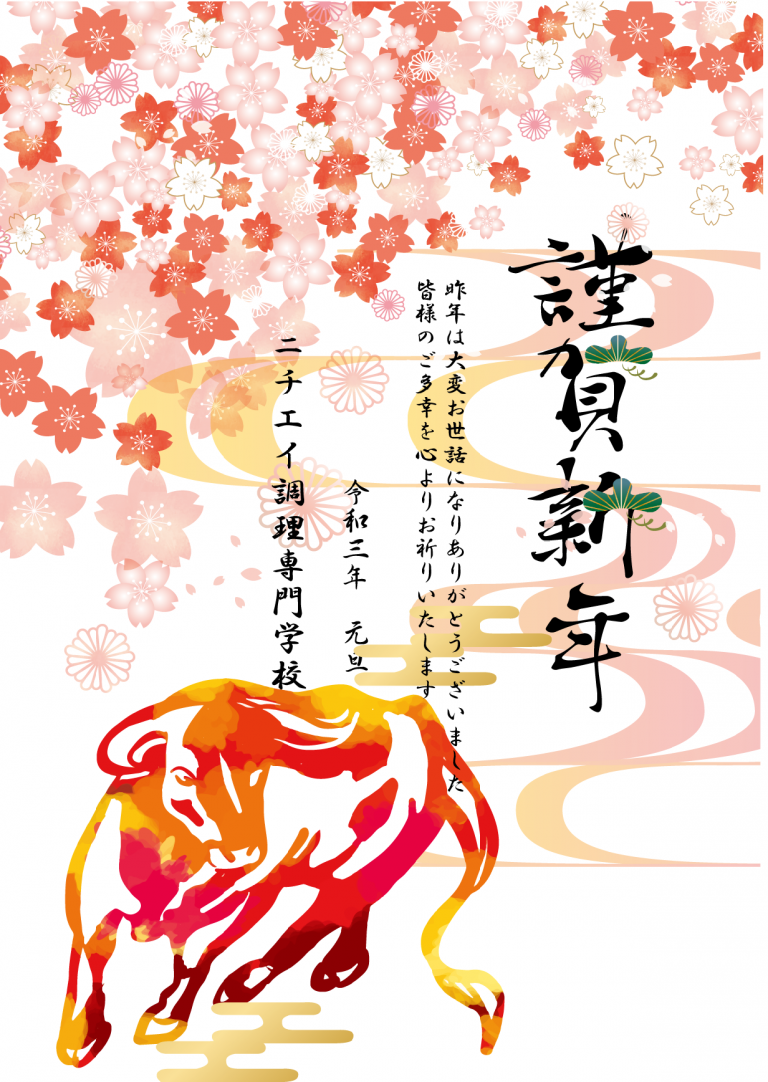 謹賀新年
昨年は大変お世話になりありがとうございました
皆様のご多幸を心よりお祈りいたします
令和三年　元旦
ニチエイ調理専門学校